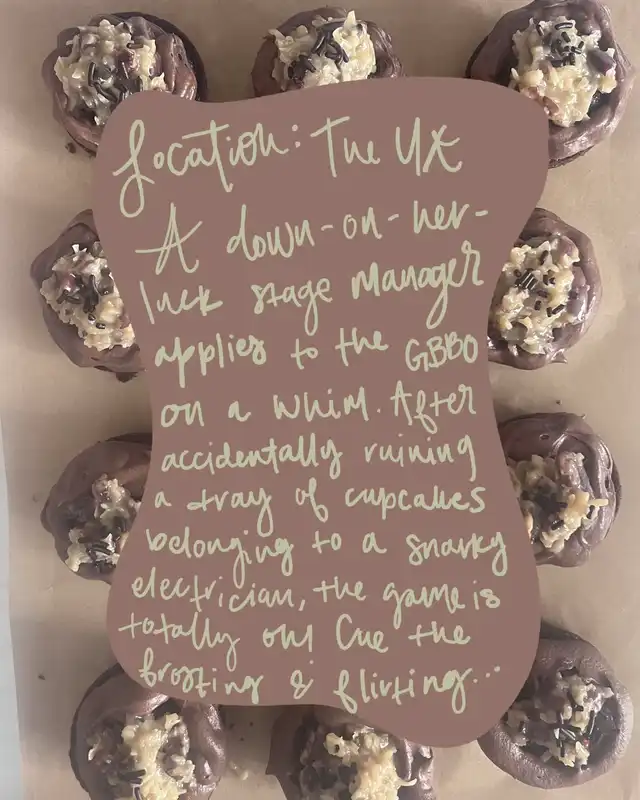 Location: The UK
A down-on-her-
luck stage manager
applies to the GBBO
on a whim. After
accidentally ruining
a tray of cupcakes
belonging to a snarky
electrician, the game is
totally on! Cue the
frosting & flirting...